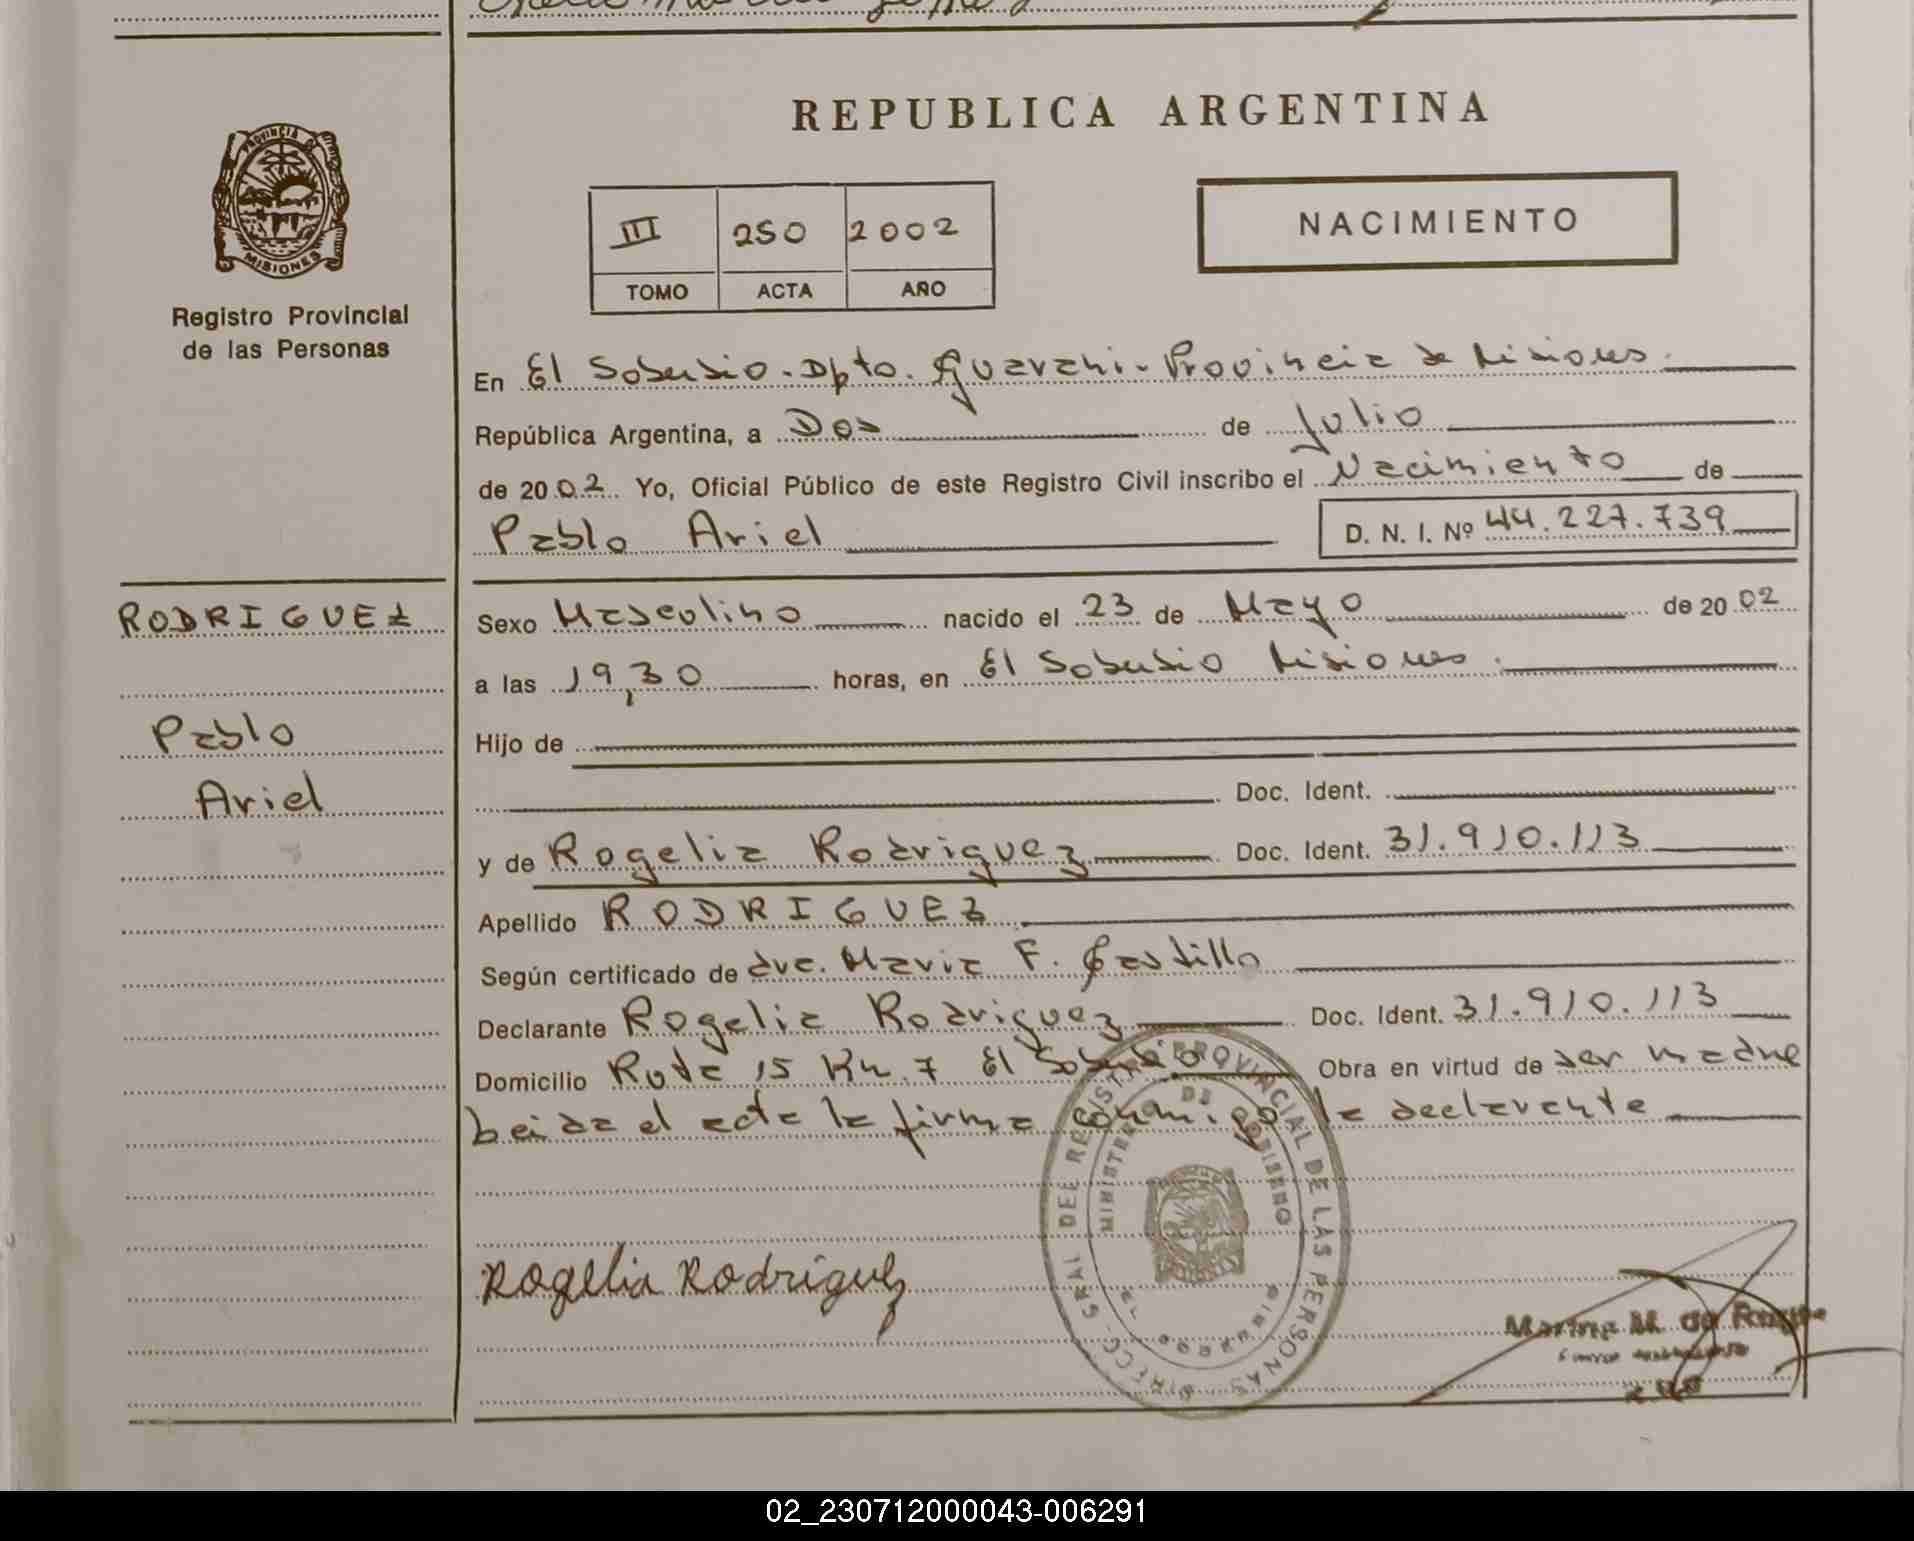 PROVINCIA DE
MISIONES
Registro Provincial
de las Personas
REPUBLICA ARGENTINA
III 250 2002
TOMO ACTA AÑO
NACIMIENTO
En El Soberbio - Dpto. Guarani - Provincia de Misiones.
República Argentina, a Dos de Julio
de 2002 Yo, Oficial Público de este Registro Civil inscribo el Nacimiento de
Pablo Ariel D. N. I. Nº 44.227.739
RODRIGUEZ
Pablo
Ariel
Sexo Masculino nacido el 23 de Mayo de 2002
a las 19,30 horas, en El Soberbio Misiones.
Hijo de
Doc. Ident.
y de Rogelia Rodriguez Doc. Ident. 31.910.113
Apellido RODRIGUEZ
Según certificado de dra. Maria F. Castillo
Declarante Rogelia Rodriguez Doc. Ident. 31.910.113
Domicilio Ruta 15 Km. 7 El Soberbio Obra en virtud de ser madre
Leida el acta la firma conmigo la declarante
Rogelia Rodriguez
DIRECC. GRAL DEL REGISTRO PROVINCIAL DE LAS PERSONAS
MINISTERIO DE GOBIERNO
EL SOBERBIO
Marina M. da
02_230712000043-006291